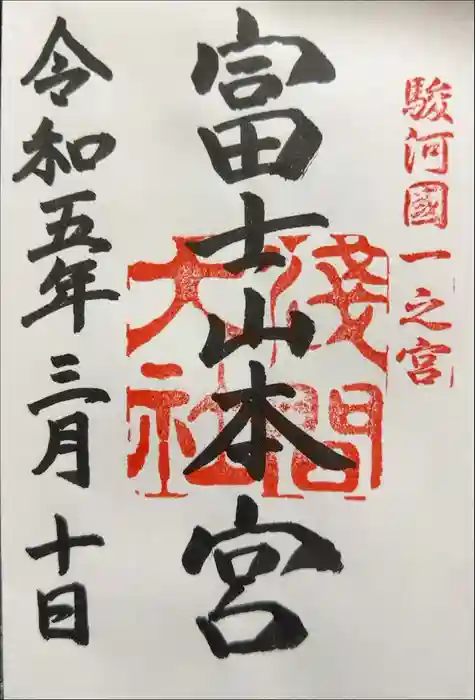 駿河國一之宮
富士山本宮
淺間大社
令和五年三月十日